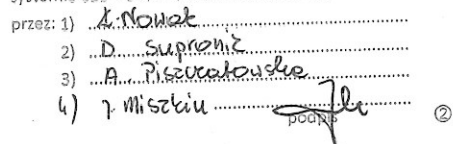 przez: 1) Ł. Nowak
2) D. Supronik
3) A. Piszczatowska
4) J. Miszkiu
podpis
②